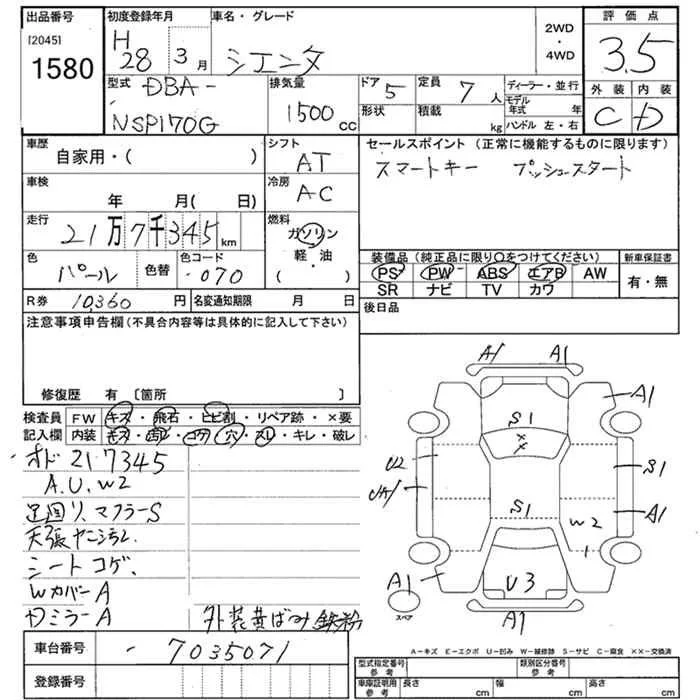 出品番号
[2045]
1580
初度登録年月
H 28年 3月
車名・グレード
シエンタ
2WD
・
4WD
評価点
3.5
外装 内装
C D
型式
DBA-
NSP170G
排気量
1500 CC
ドア 5
形状
定員 7人
積載 kg
ディーラー・並行
モデル年式 年
ハンドル 左・右
車歴
自家用・( )
車検
年 月( 日)
走行
21万7千345 km
色
パール
色替
色コード
070
R券 10,360 円
名変通知期限 月 日
シフト
AT
冷房
AC
燃料
ガソリン
軽・油
( )
セールスポイント (正常に機能するものに限ります)
スマートキー プッシュスタート
装備品(純正品に限り○をつけてください)
PS PW ABS エアB AW
SR ナビ TV カワ
新車保証書
有・無
後日品
注意事項申告欄(不具合内容等は具体的に記入して下さい)
修復歴 有 [箇所 ]
検査員 FW キズ・飛石・ヒビ割・リペア跡・×要
記入欄 内装 キズ・汚レ・コゲ・穴・スレ・キレ・破レ
オド 217345
A.U.W2
足回リ、マフラーS
天張ヤニ汚レ
シートコゲ
WカバーA
DミラーA
外装黄ばみ鉄粉
車台番号 - 7035071
登録番号
A1 A1
A1
S1
××
U2
S1
UA1
S1
A1
W2
1
A1
U3
A1
スペア
A-キズ E-エクボ U-凹み W-補修跡 S-サビ C-腐食 ××-交換済
型式指定番号 参考
類別区分番号 参考
車庫証明用 参考 長さ cm 幅 cm 高さ cm